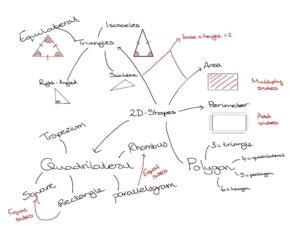 Equilateral
Isosceles
Triangles
base x height ÷ 2
Right-Angled
Scalene
Area
Multiply
sides
2D-Shapes
Perimeter
Add
sides
Trapezium
Rhombus
3 = triangle
Quadrilateral
4 = quadrilateral
Equal
sides
Polygon
5 = pentagon
Square
Rectangle
parallelogram
6 = hexagon
Equal
sides